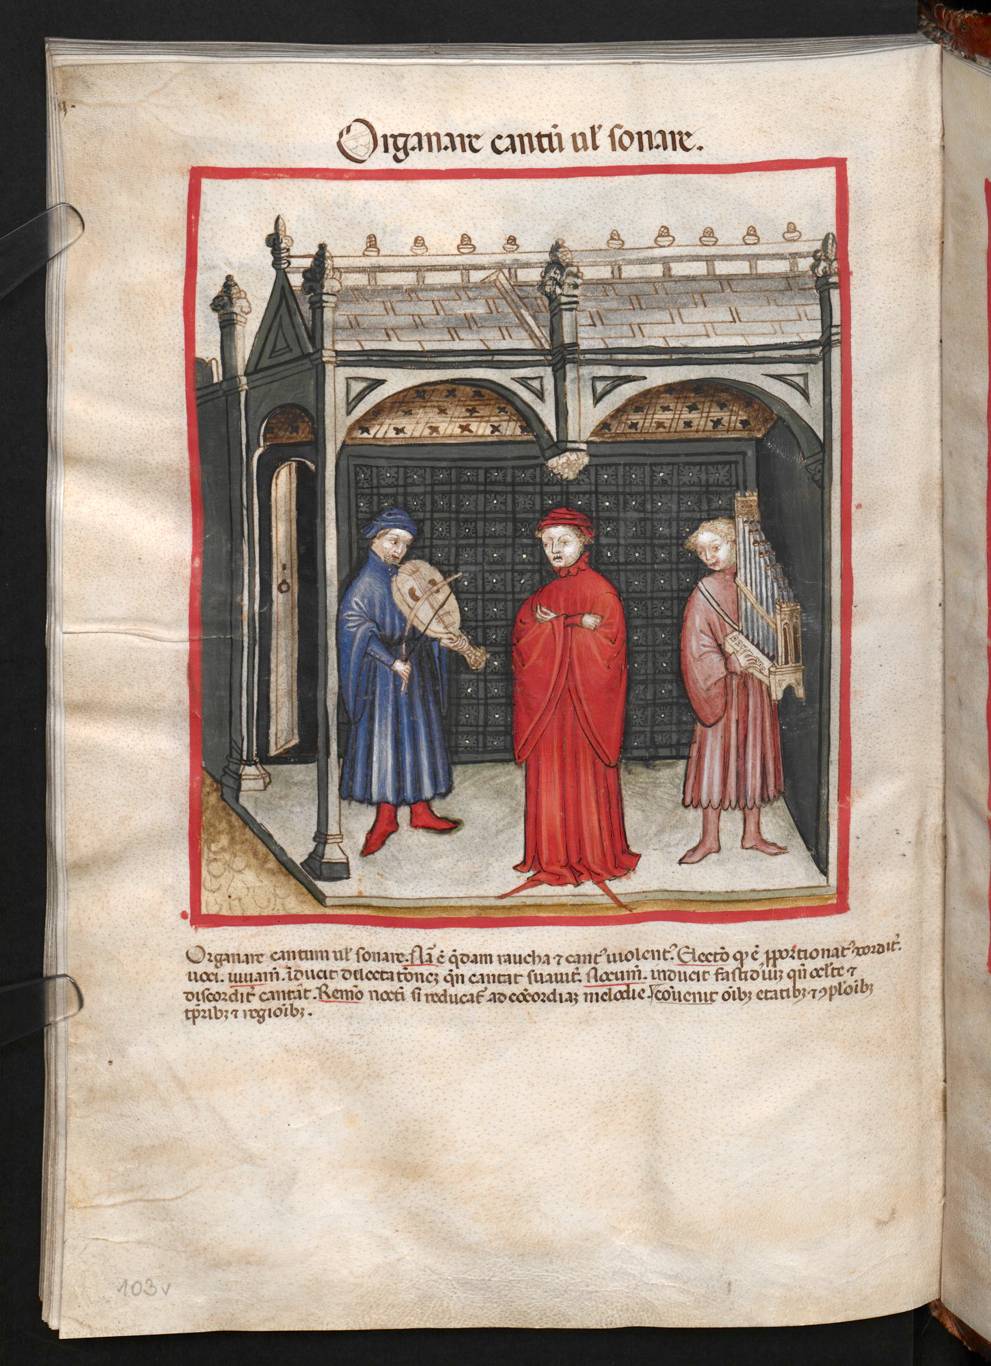 Organare cantū ul' sonare.
Organare cantum ul' sonare. Nā ē q̄dam raucha ⁊ cant9 uiolent9. Electō qͥ ē ꝓportionat9 cordit̄.
uoci. iuuam̄. īducit delectatōneꝫ qn̄ cantat suauit̄. Nocum̄. inducit fastid
discordit̄ cantāt. Remō nocti si reducat̄ ad cōcordiaꝫ melodie. cōuenit oīb9 etatibꝫ ⁊
tp̄ribꝫ ⁊ regioībꝫ.
103v